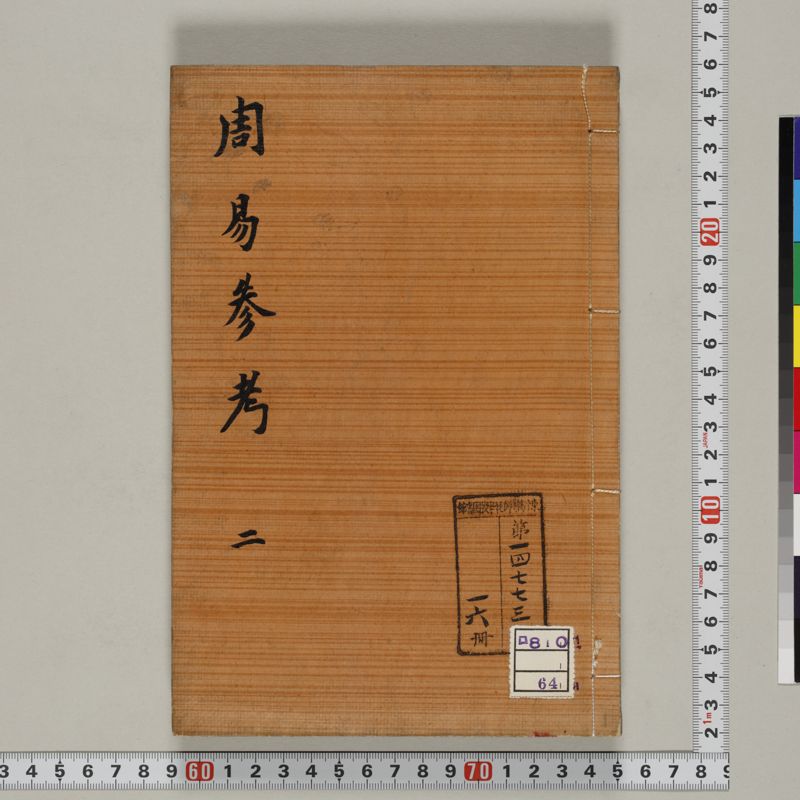 周易参考
二
第一四七七三
一六冊
ロ8 0
64
8 7 6 5 4 3 2 1 20 9 8 7 6 5 4 3 2 1 10 9 8 7 6 5 4 3 2
JAPAN
1m
3 4 5 6 7 8 9 60 1 2 3 4 5 6 7 8 9 70 1 2 3 4 5 6 7 8 9